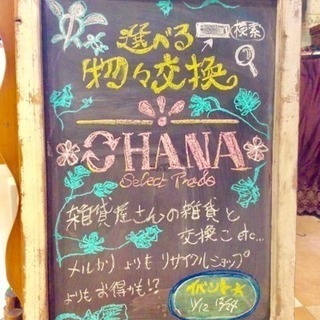 選べる
検索
物々交換
OHANA
Select Prado
雑貨屋さんの雑貨と
交換こす…
メルカリよりもリサイクルショップ
よりもお得かも!?
イベント☆
11/12